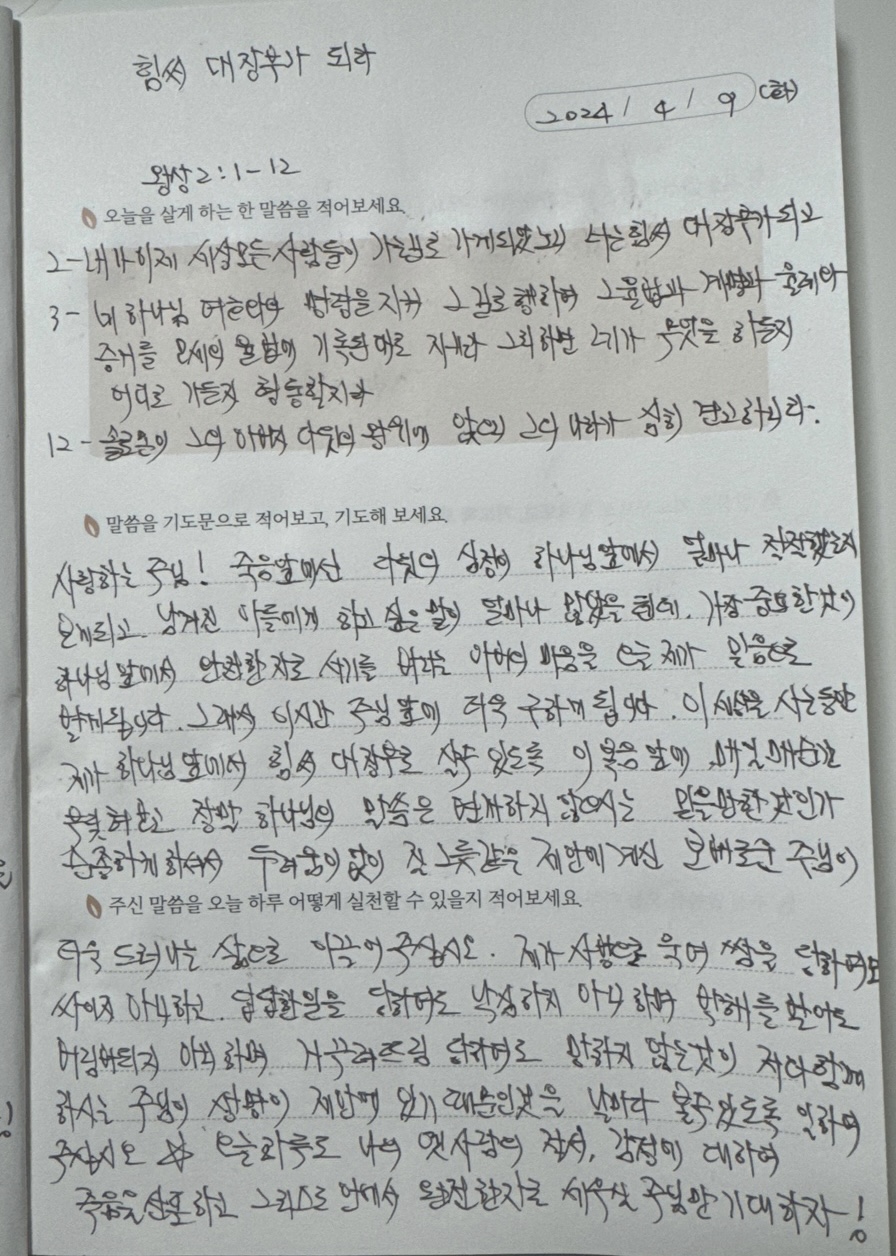 힘써 대장부가 되라
2024 / 4 / 9 (화)
왕상 2 : 1 - 12
오늘을 살게 하는 한 말씀을 적어보세요.
2 - 내가 이제 세상모든 사람들이 가는길로 가게되었노니 너는힘써 대장부가되고
3 - 네 하나님 여호와의 명령을 지켜 그 길로 행하여 그율법과 계명과 율례와
증거를 모세의 율법에 기록된대로 지키라 그리하면 네가 무엇을 하든지
어디로 가든지 형통할지라
12 - 솔로몬이 그의 아버지 다윗의 왕위에 앉으니 그의 나라가 심히 견고하니라.
말씀을 기도문으로 적어보고, 기도해 보세요.
사랑하는 주님! 죽음앞에선 다윗의 심정이 하나님앞에서 얼마나 직전했는지
보게되고. 남겨진 아들에게 하고 싶은 말이 얼마나 많았을 텐데. 가장 중요한것이
하나님 앞에서 완전한 자로 서기를 바라는 아버의 마음을 오늘 제가 믿음으로
받게됩니다. 그래서 이시간 주님 앞에 더욱 구하게 됩니다. 이 세상을 사는동안
제가 하나님 앞에서 힘써 대장부로 살수 있도록 이 복음 앞에 매일 매순간
우뚝서고 정말 하나님의 말씀은 변개하지 않으시는 믿을만한 것인가
순종하게하셔서 두려움이 없이 질그릇같은 제안에 계신 보배로운 주님이
주신 말씀을 오늘 하루 어떻게 실천할 수 있을지 적어보세요.
더욱 드러나는 삶으로 이끌어 주십시오. 제가 사방으로 욱여 쌈을 당하여도
싸이지 아니하고. 답답한일을 당하여도 낙심하지 아니하며 박해를 받아도
버린바되지 아니하며 거꾸러뜨림 당하여도 망하지 않는것이 저와함께
하시는 주님의 생명이 제안에 있기 때문인것을 날마다 볼수있도록 일하여
주십시오 ☆ 오늘하루도 나의 옛사람의 정서, 감정에 대하여
죽음을 선포하고 그리스도 안에서 완전한자로 세우실 주님만 기대하자!